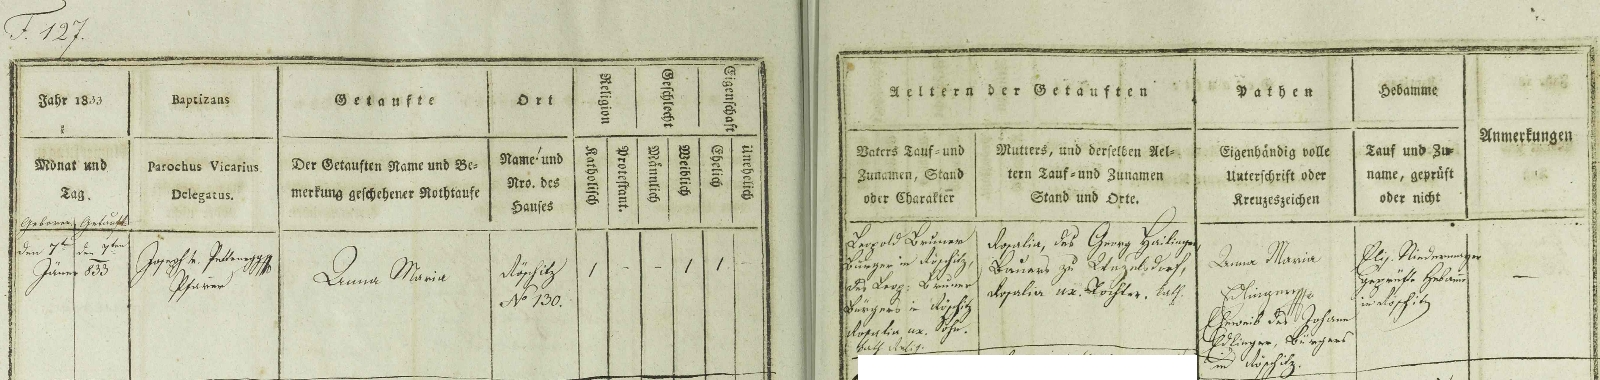 F. 127.
Jahr 1833
Baptizans
Getaufte
Ort
Religion
Geschlecht
Eigenschaft
Monat und
Tag.
Parochus Vicarius
Delegatus.
Der Getauften Name und Be-
merkung geschehener Nothtaufe
Name und
Nro. des
Hauses
Katholisch
Protestant.
Männlich
Weiblich
Ehelich
Unehelich
Geboren Getauft
den 7ten den 7ten
Jäner 833
Joseph v.
Pfarrer
Anna Maria
Röschitz
No 130.
1 - - 1 1 -
Aeltern der Getauften
Pathen
Hebamme
Anmerkungen
Vaters Tauf- und
Zunamen, Stand
oder Charakter
Mutters, und derselben Ael-
tern Tauf- und Zunamen
Stand und Orte.
Eigenhändig volle
Unterschrift oder
Kreuzeszeichen
Tauf und Zu-
name, geprüft
oder nicht
Leopold Bruner
Bürger in Röschitz,
des Leop. Bruner
Bürgers in Röschitz
Rosalia ux. Sohn.
kath. Relig.
Rosalia, des Georg
Bauers zu
Rosalia ux. Tochter. kath.
Anna Maria
Edlinger
Eheweib des Johann
Edlinger, Bürgers
in Röschitz.
Elis. Niedermayer
geprüfte Hebamm
in Röschitz
—